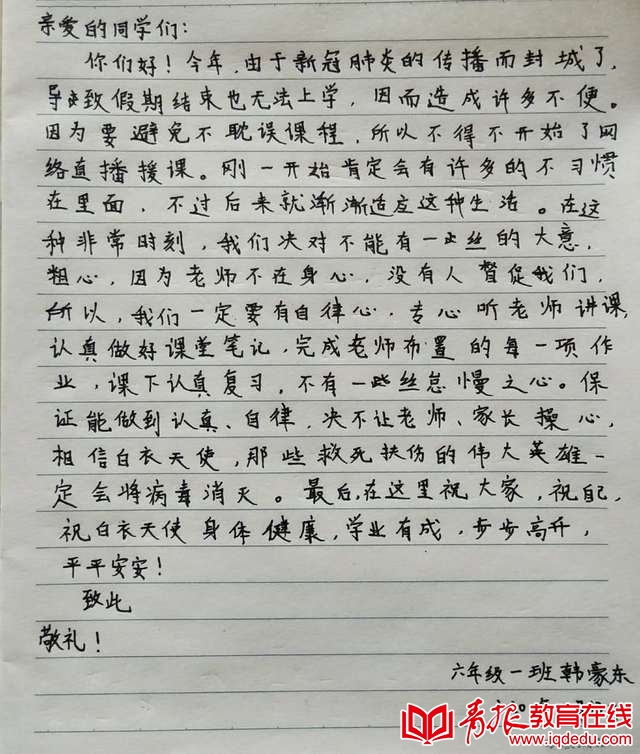 亲爱的同学们:
你们好!今年,由于新冠肺炎的传播而封城了,
导致假期结束也无法上学,因而造成许多不便。
因为要避免不耽误课程,所以不得不开始了网
络直播授课。刚一开始肯定会有许多的不习惯
在里面,不过后来就渐渐适应这种生活。在这
种非常时刻,我们决对不能有一丝的大意,
粗心,因为老师不在身心,没有人督促我们,
所以,我们一定要有自律心,专心听老师讲课,
认真做好课堂笔记,完成老师布置的每一项作
业,课下认真复习,不有一些丝怠慢之心。保
证能做到认真、自律,决不让老师、家长操心,
相信白衣天使,那些救死扶伤的伟大英雄一
定会将病毒消灭。最后,在这里祝大家,祝自己,
祝白衣天使身体健康,学业有成,步步高升,
平平安安!
致此
敬礼!
六年级一班韩豪东
青报教育在线
www.iqdedu.com